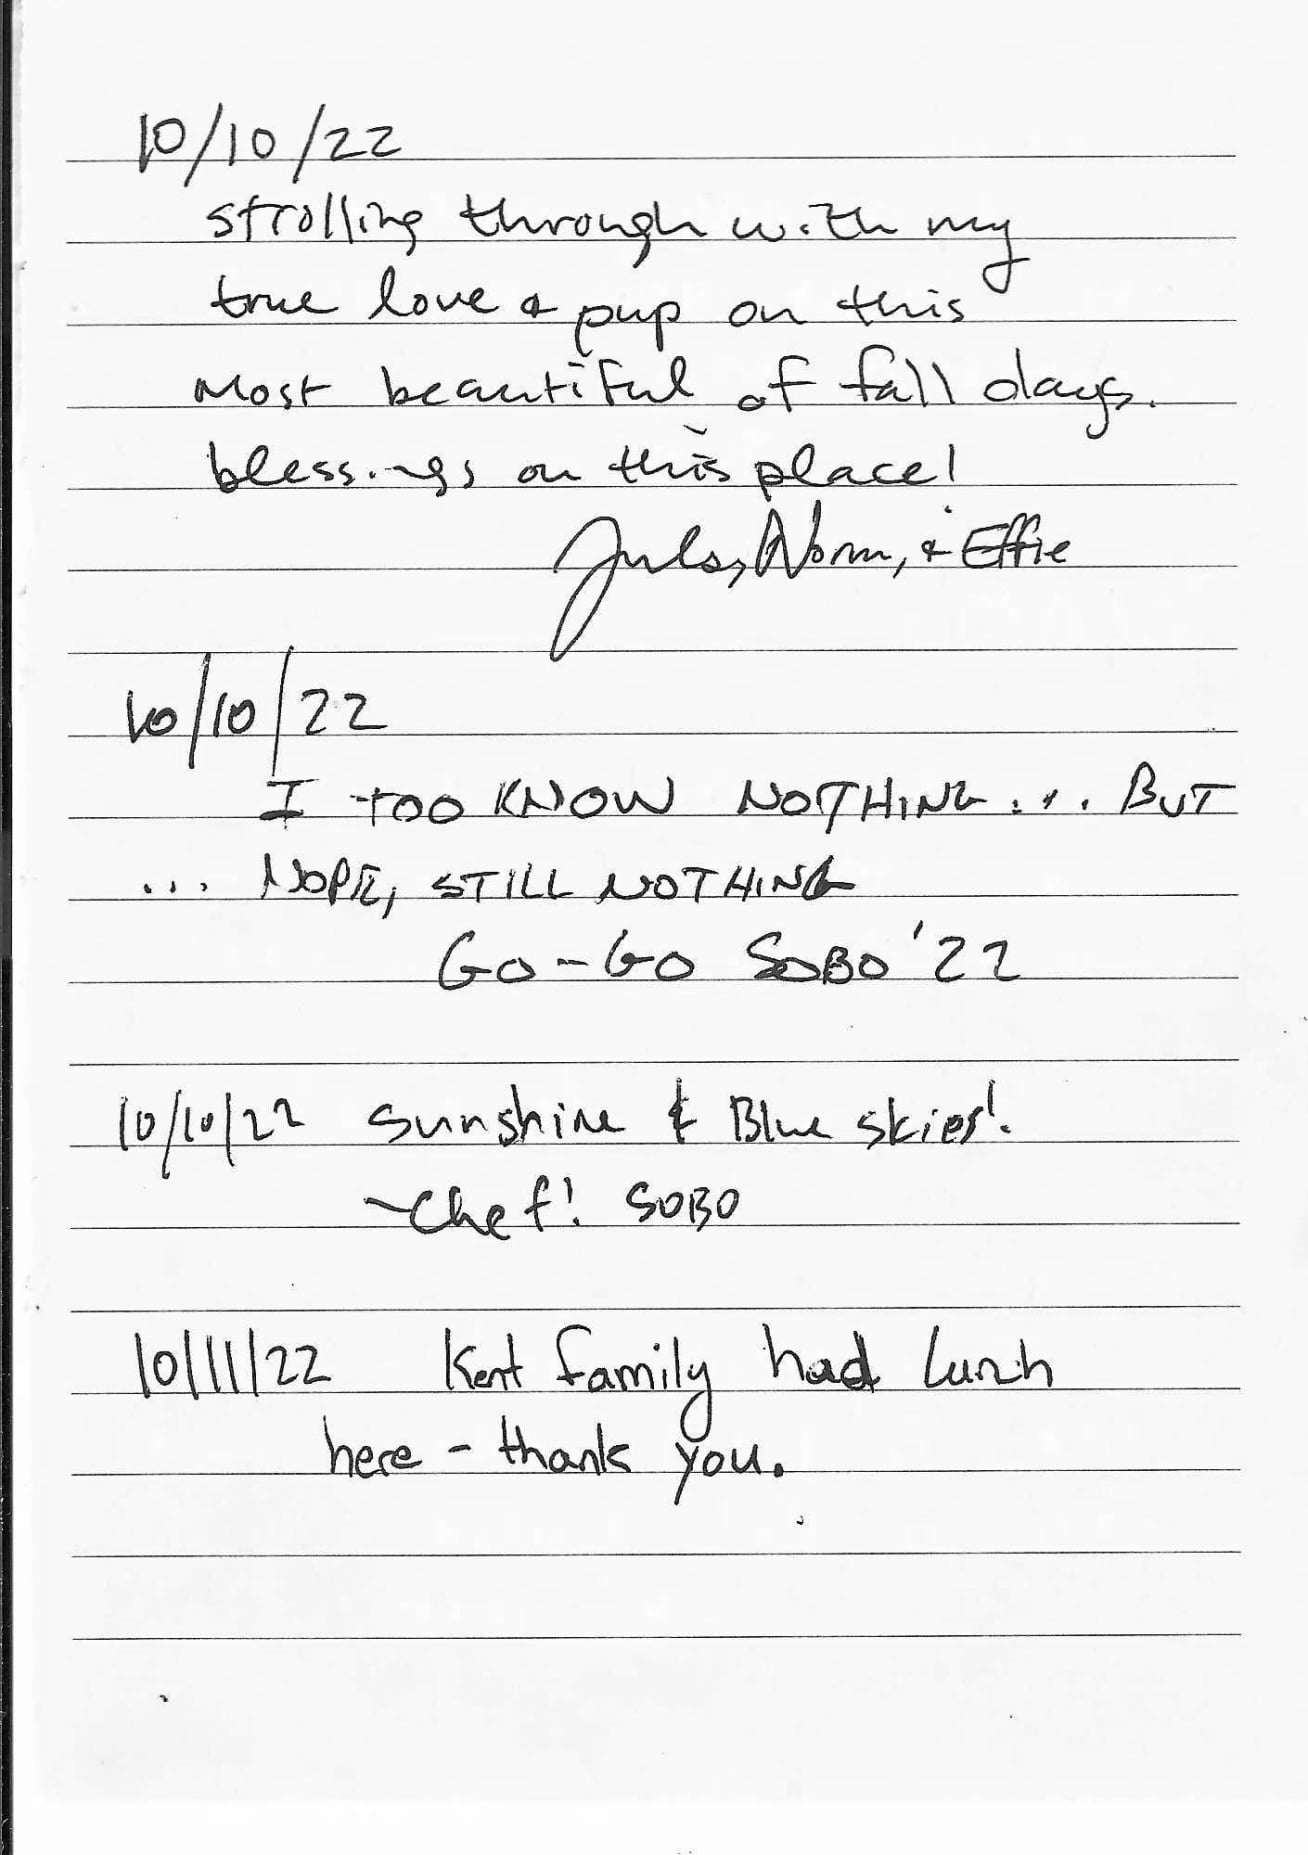 10/10/22
strolling through with my
true love & pup on this
most beautiful of fall days.
blessings on this place!
Jules, Norm, & Effie
10/10/22
I TOO KNOW NOTHING... BUT
... NOPE, STILL NOTHING
GO-GO SOBO '22
10/10/22 Sunshine & Blue skies!
~Chef! SOBO
10/11/22 Kent family had lunch
here - thank you.